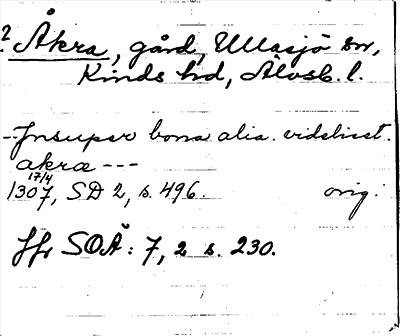 ? Åkra, gård, Ullasjö sn,
Kinds hd, Älvsb. l.
- Insuper bona alia. videlicet.
akra ---
17/4
1307, SD 2, s. 496. orig.
Jfr SOÄ: 7, 2 s. 230.